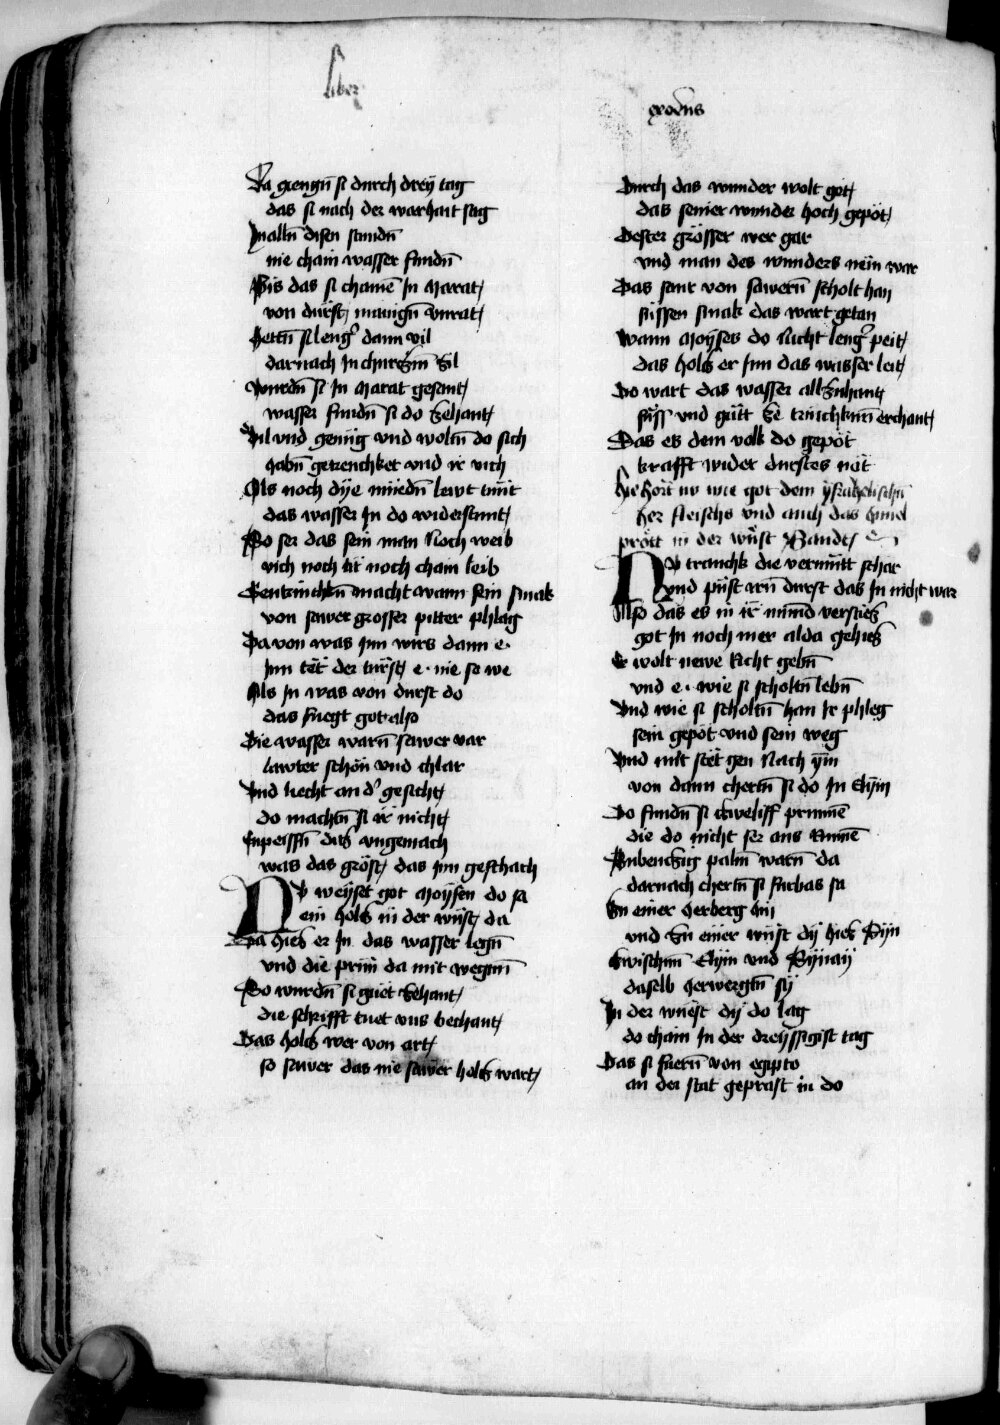 liber
exodus
Da giengn̄ si durch dreÿ tag
das si nach der warhait sag
In alln̄ disen stundn̄
nie chain wasser fundn̄
Bis das si chamē In Marat
von dürst manign̄ vnrat
Hettn̄ si leng̾ dann vil
darnach In churczm̄ zil
Wurdn̄ si In Marat gesant
wasser fundn̄ si do zehant
Vil vnd genüg vnd woltn̄ do sich
habn̄ getrenchket vnd ir vich
Als noch dÿe müedn̄ lewt tuͤt
das wasser In do widerstunt
So ser das sein man Noch weib
vich noch tir noch chain leib
Gentrinchkn̄ macht wann sein smak
von sawer grosser pitter phlag
Da von was Inn wirs dann e
Inn tët der türst e · nie so we
Als In was von durst do
das fuegt got also
Die wasser warn̄ sawer var
lawter schön vnd chlar
Vnd liecht an d̾ gesicht
do machtn̄ si ir nicht
Enpeissn̄ dicz vngemach
was das gröst das Inn geschach
Do weÿset got Moÿsen do sa
ein holcz in der wüst da
Da hies er In das wasser legn̄
vnd die prün da mit wegm̄
So wurdn̄ si guet zehant
die schrifft tuet vns bechant
Das holcz wer von art
so sawer das nie sawer holcz wart
Durch das wunder wolt got
das seiner wunder hoch gepöt
Dester grösser wer gar
vnd man des wunders nëm war
Das saur von sawern̄ scholt han
süssen smak das wart getan
Wann Moÿses do Nicht leng̾ peit
das holcz er Inn das wasser leit
Do wart das wasser allczuhant
süss vnd guͤt ze trinchkn̄ erchant
Das es dem volk do gepöt
krafft wider durstes nöt
Hie hört nv wie got dem ÿsrahelischn̄
her fleischs vnd auch das himel
prött in der wüst Sandt
Do tranchk die vermüt schar
vnd püst irn̄ durst das In nicht war
Also das es in ir mund verstiez
got In noch mer alda gehiez
Er wolt newe Richt gebn̄
vnd e · wie si scholtn̄ lebn̄
Vnd wie si scholtn̄ han Ir phleg
sein gepöt vnd sein weg
Vnd mit stët gen Nach ÿm
von dann chertn̄ si do In Elÿm
Do fundn̄ si czweliff prunnē
die do nicht ser ans Runnē
Subenczig palm̄ warn̄ da
darnach chertn̄ si furbas sa
Zu einer herberg hin
vnd zu einer wüst dÿ hies Sÿn
Zwischnn̄ Elÿm vnd Sÿnaÿ
daselb herwergtn̄ sÿ
In der wüest dÿ do lag
do cham In der dreÿssigist tag
Das si fuern̄ von egipto
an der stat geprast in do